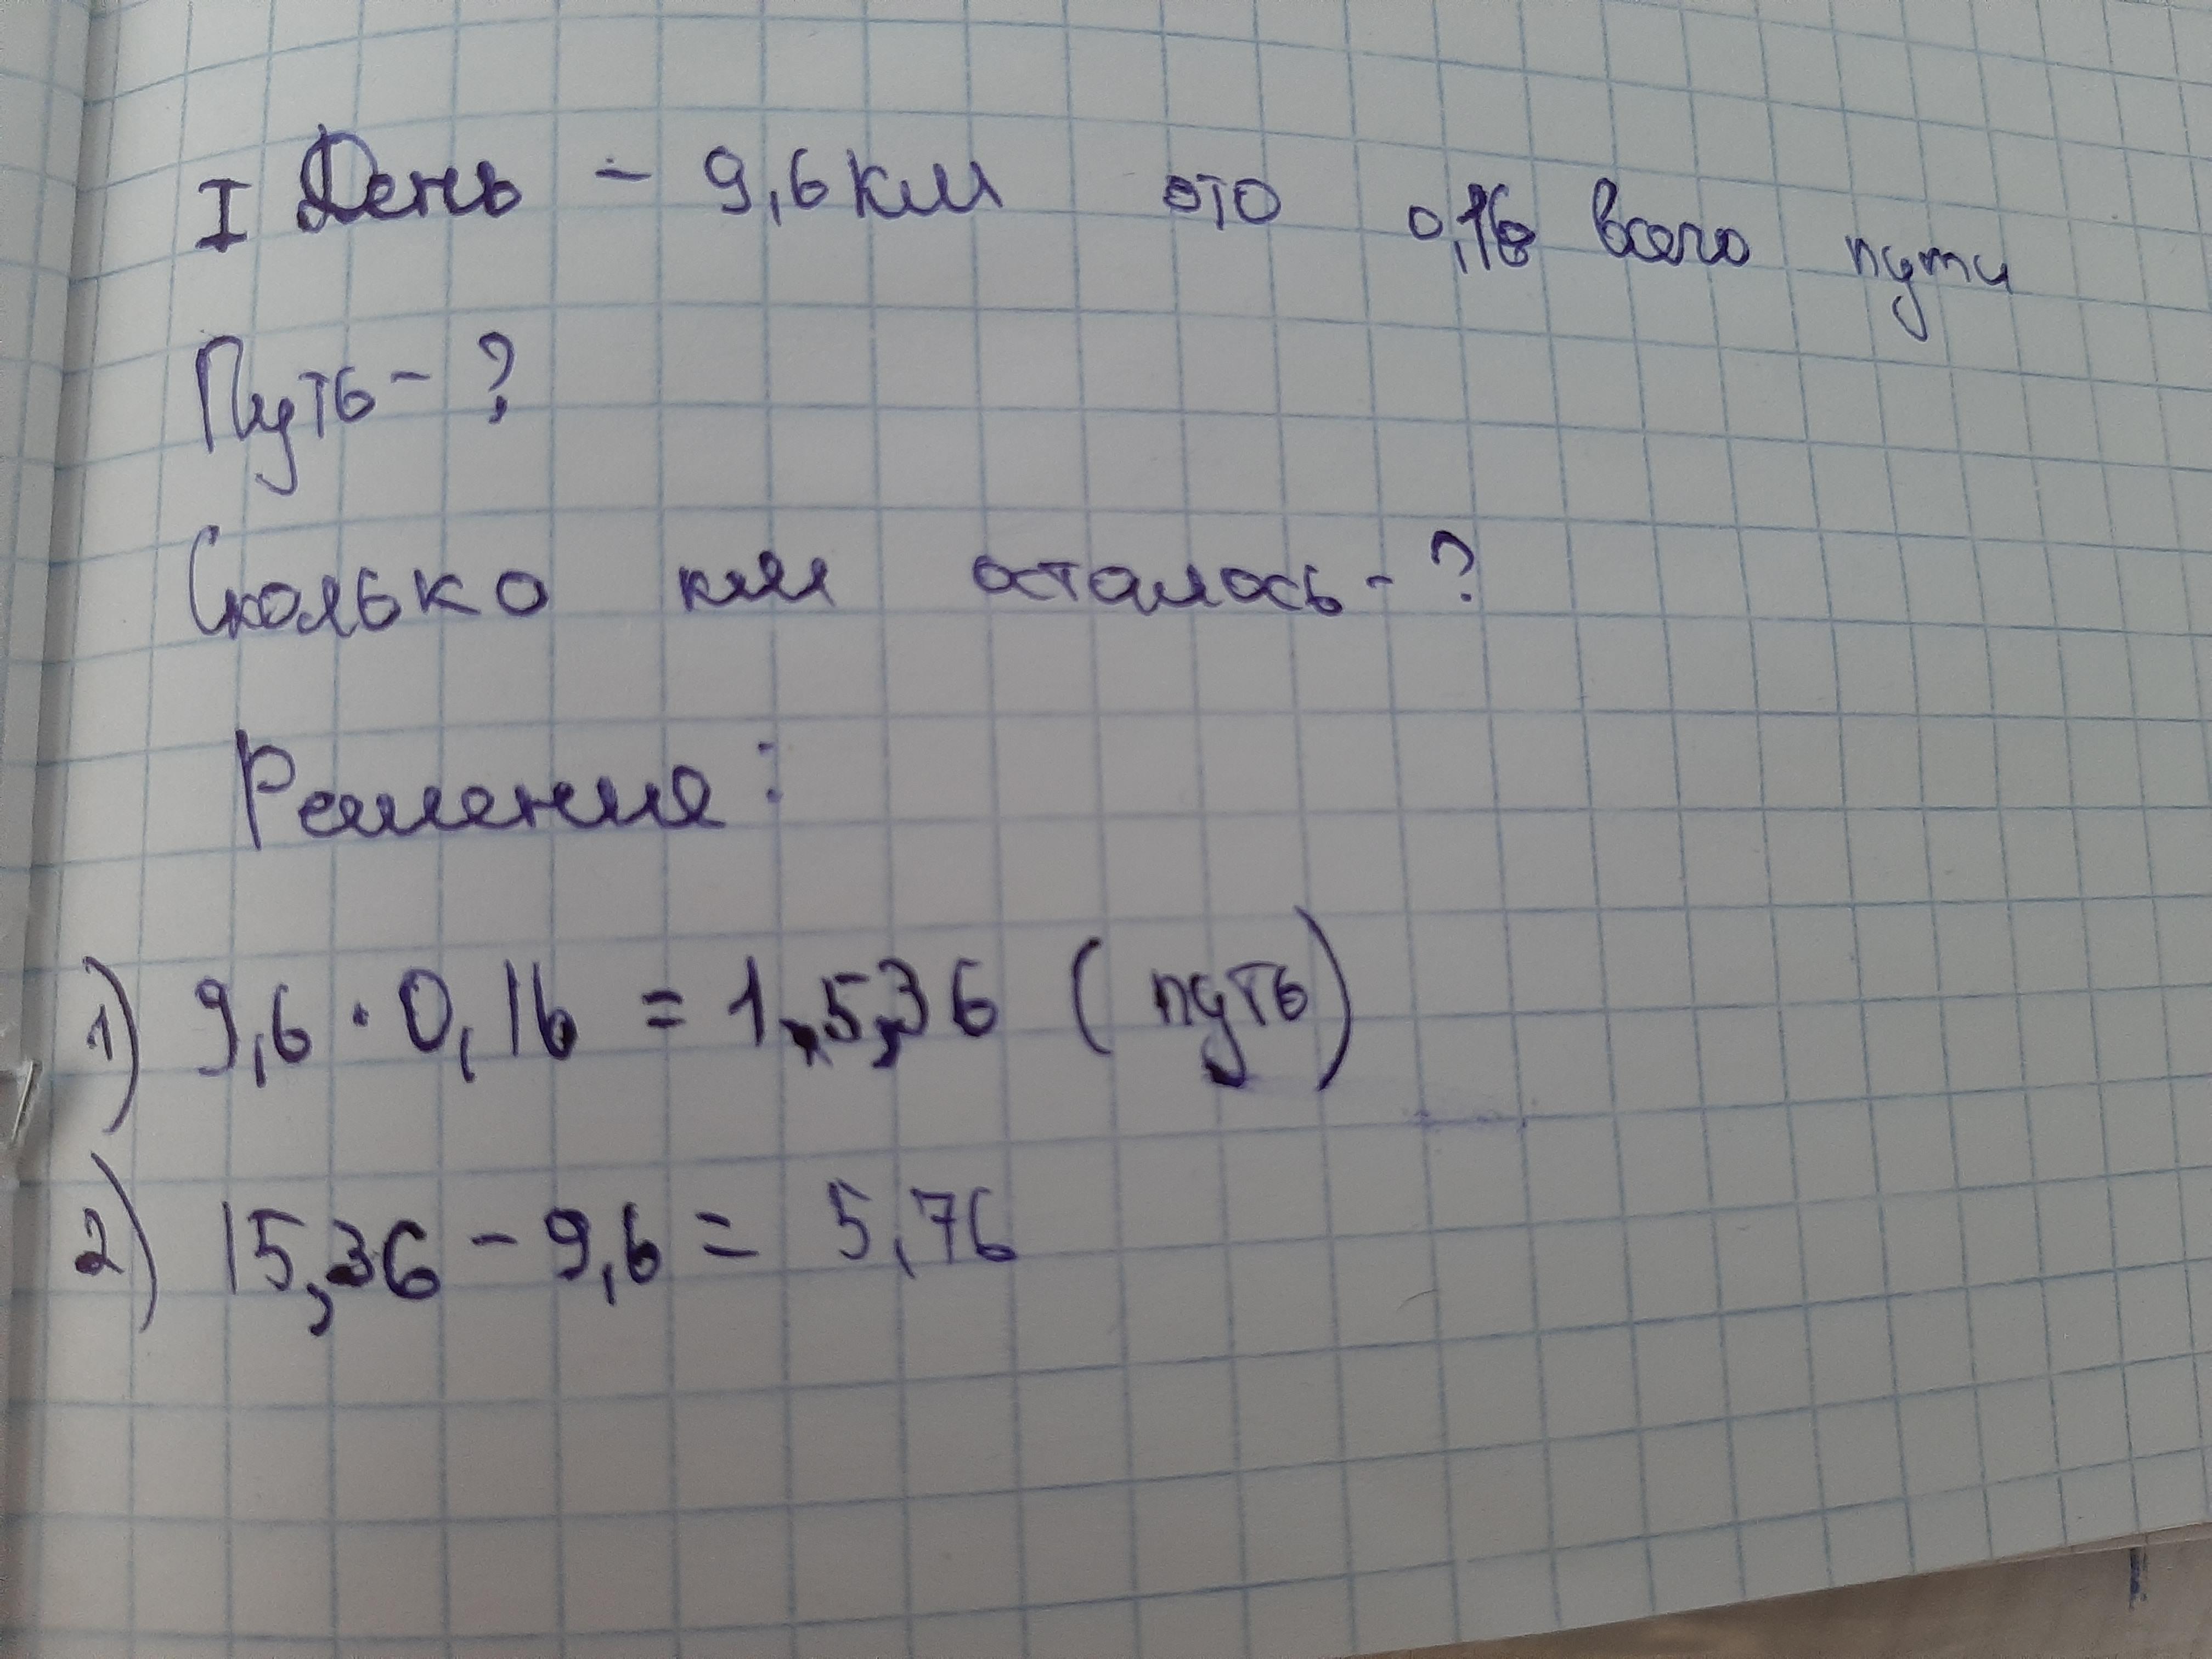 I День - 9,6 км это 0,16 всего пути
Путь - ?
Сколько км осталось - ?
Решение:
1) 9,6 · 0,16 = 1,5,36 (путь)
2) 15,36 - 9,6 = 5,76